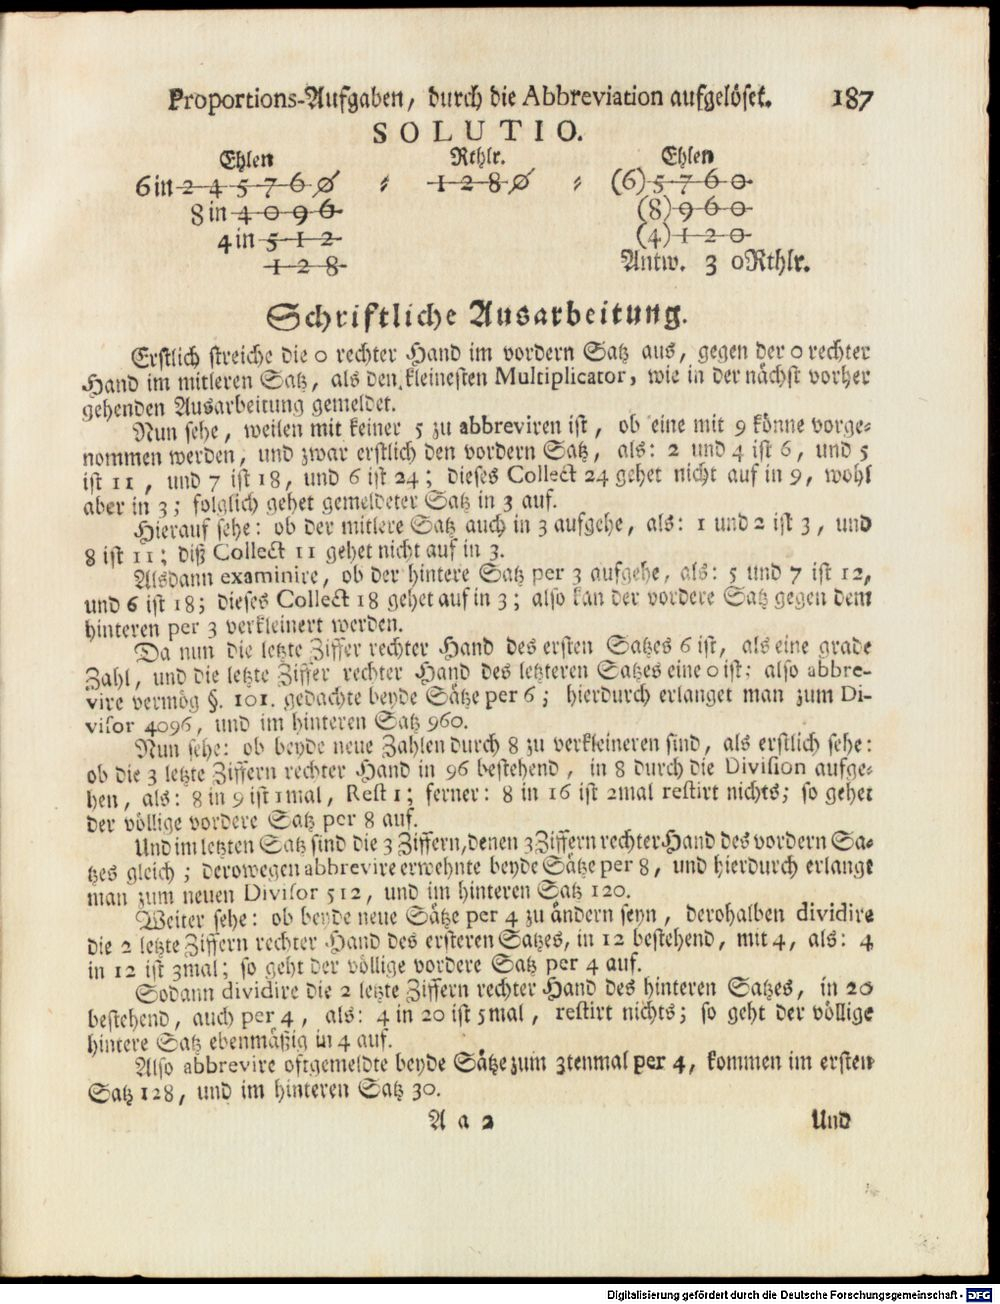 Proportions-Aufgaben, durch die Abbreviation aufgelöset. 187
SOLUTIO.
Ehlen Rthlr. Ehlen
6 in 2 4 5 7 6 0 ⸗ 1 2 8 0 ⸗ (6) 5 7 6 0
8 in 4 0 9 6 (8) 9 6 0
4 in 5 1 2 (4) 1 2 0
1 2 8 Antw. 3 0 Rthlr.
Schriftliche Ausarbeitung.
Erstlich streiche die 0 rechter Hand im vordern Satz aus, gegen der 0 rechter
Hand im mitleren Satz, als den kleinesten Multiplicator, wie in der nächst vorher
gehenden Ausarbeitung gemeldet.
Nun sehe, weilen mit keiner 5 zu abbreviren ist, ob eine mit 9 könne vorge⸗
nommen werden, und zwar erstlich den vordern Satz, als: 2 und 4 ist 6, und 5
ist 11, und 7 ist 18, und 6 ist 24; dieses Collect 24 gehet nicht auf in 9, wohl
aber in 3; folglich gehet gemeldeter Satz in 3 auf.
Hierauf sehe: ob der mitlere Satz auch in 3 aufgehe, als: 1 und 2 ist 3, und
8 ist 11; diß Collect 11 gehet nicht auf in 3.
Alsdann examinire, ob der hintere Satz per 3 aufgehe, als: 5 und 7 ist 12,
und 6 ist 18; dieses Collect 18 gehet auf in 3; also kan der vordere Satz gegen dem
hinteren per 3 verkleinert werden.
Da nun die letzte Ziffer rechter Hand des ersten Satzes 6 ist, als eine grade
Zahl, und die letzte Ziffer rechter Hand des letzteren Satzes eine 0 ist; also abbre-
vire vermög §. 101. gedachte beyde Sätze per 6; hierdurch erlanget man zum Di-
visor 4096, und im hinteren Satz 960.
Nun sehe: ob beyde neue Zahlen durch 8 zu verkleineren sind, als erstlich sehe:
ob die 3 letzte Ziffern rechter Hand in 96 bestehend, in 8 durch die Division aufge⸗
hen, als: 8 in 9 ist 1mal, Rest 1; ferner: 8 in 16 ist 2mal restirt nichts; so gehet
der völlige vordere Satz per 8 auf.
Und im letzten Satz sind die 3 Ziffern, denen 3 Ziffern rechter Hand des vordern Sa⸗
tzes gleich; derowegen abbrevire erwehnte beyde Sätze per 8, und hierdurch erlangt
man zum neuen Divisor 512, und im hinteren Satz 120.
Weiter sehe: ob beyde neue Sätze per 4 zu ändern seyn, derohalben dividire
die 2 letzte Ziffern rechter Hand des ersteren Satzes, in 12 bestehend, mit 4, als: 4
in 12 ist 3mal; so geht der völlige vordere Satz per 4 auf.
Sodann dividire die 2 letzte Ziffern rechter Hand des hinteren Satzes, in 20
bestehend, auch per 4, als: 4 in 20 ist 5mal, restirt nichts; so geht der völlige
hintere Satz ebenmäßig in 4 auf.
Also abbrevire oftgemeldte beyde Sätze zum 3tenmal per 4, kommen im ersten
Satz 128, und im hinteren Satz 30.
A a 2 Und
Digitalisierung gefördert durch die Deutsche Forschungsgemeinschaft - DFG